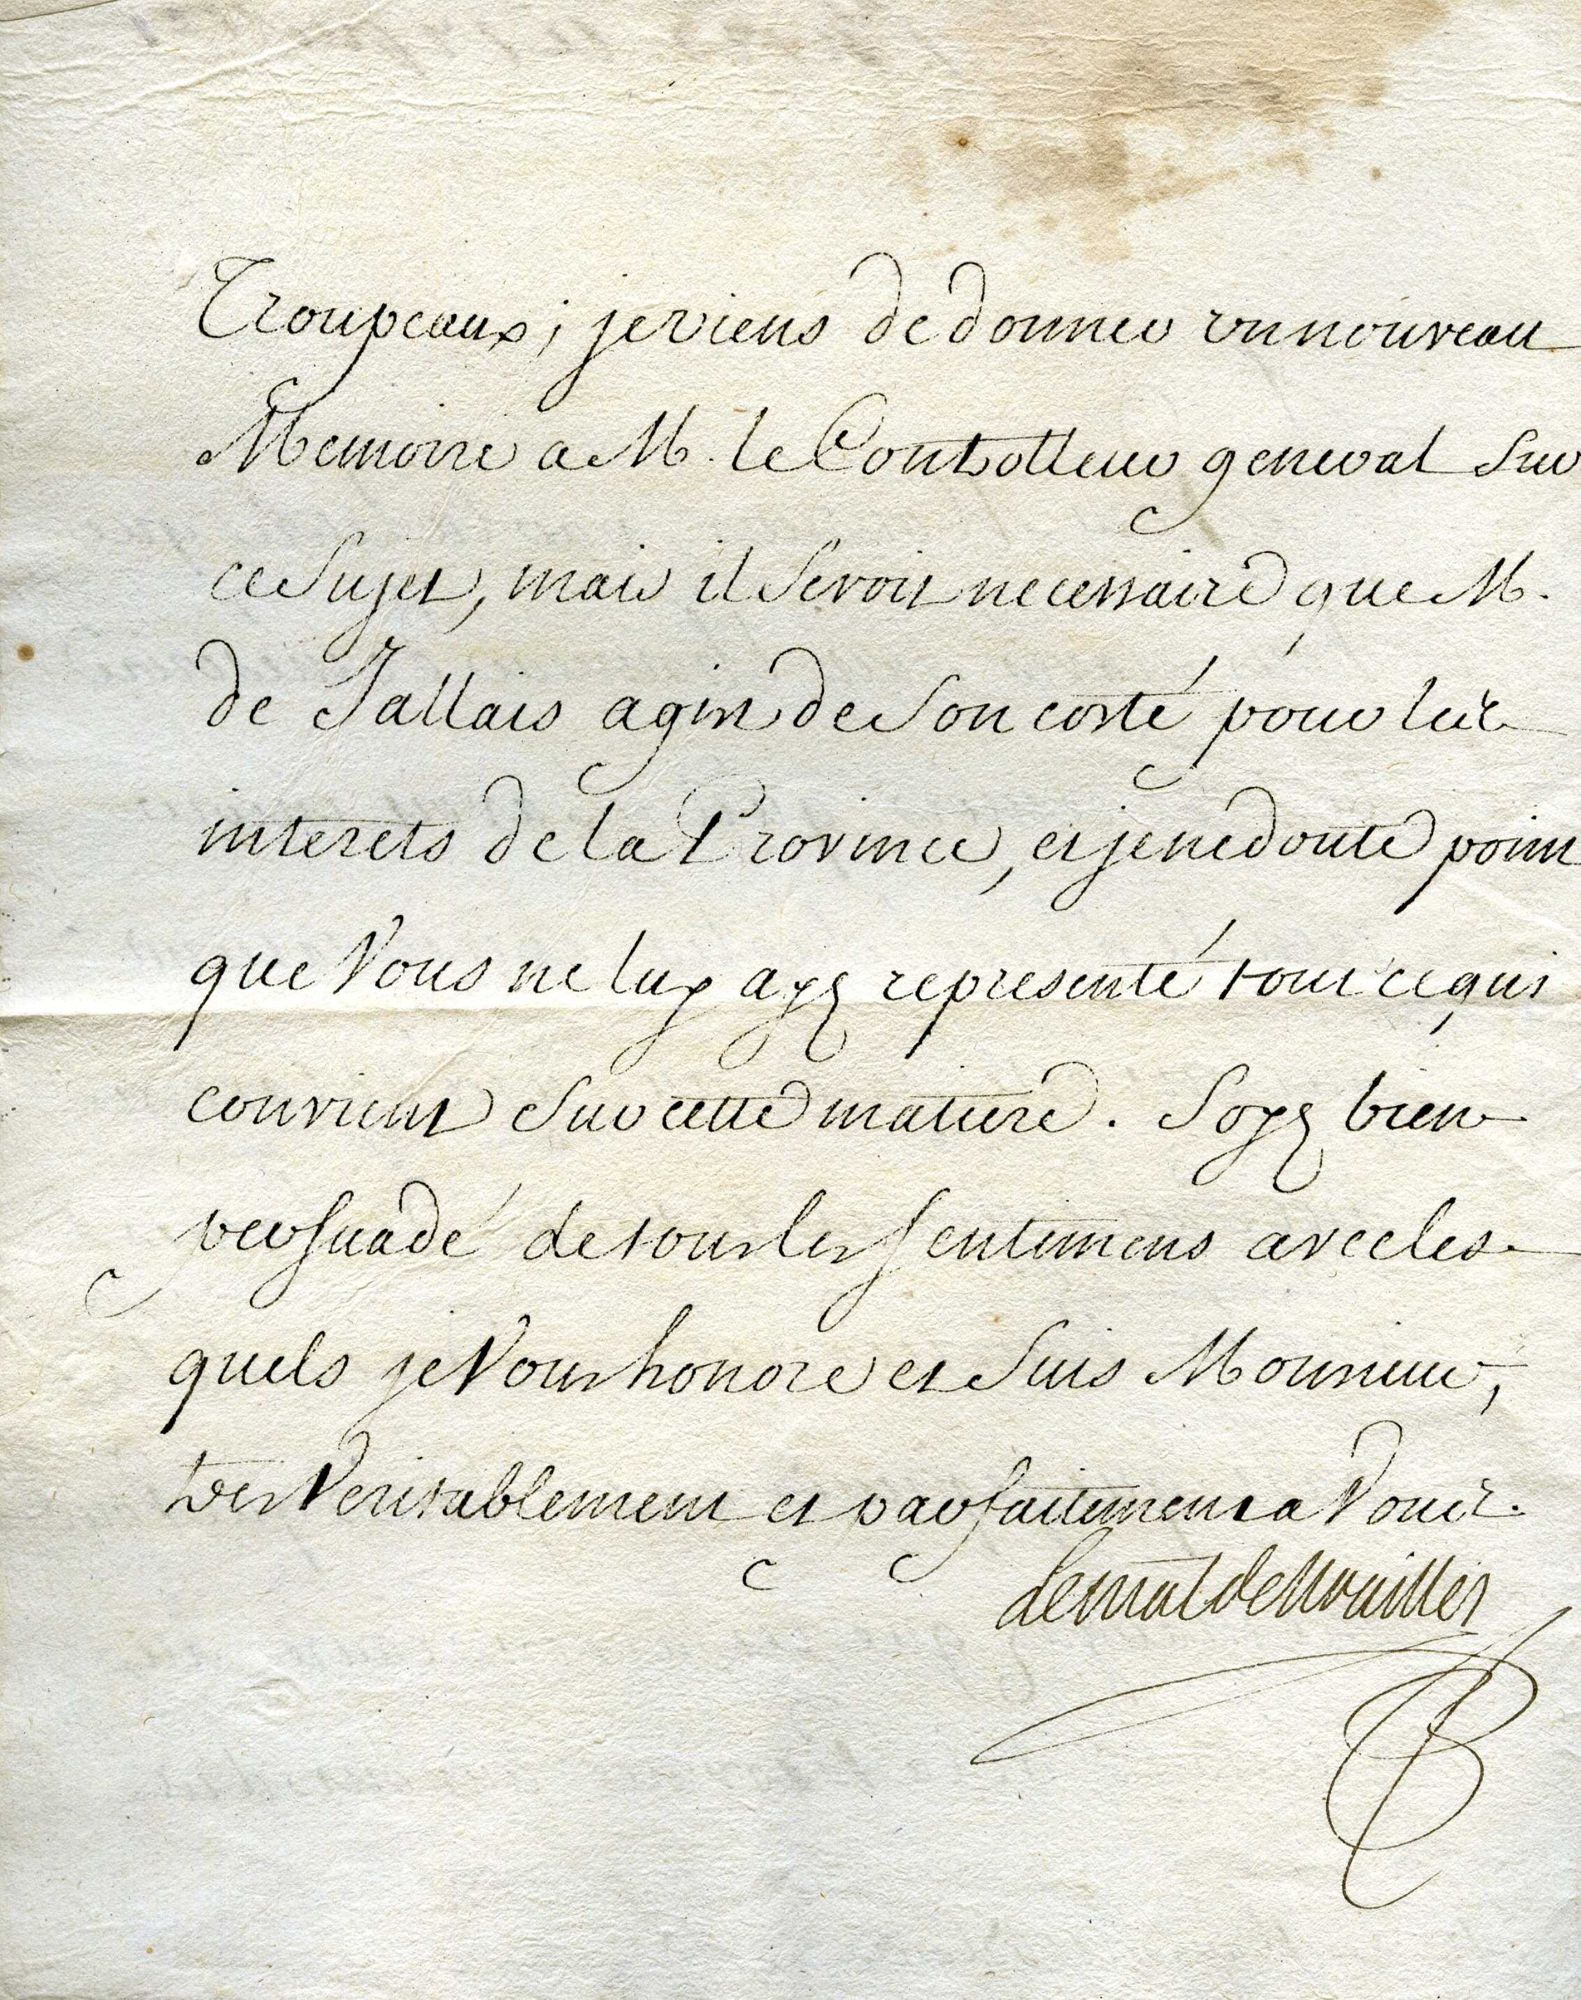 Troupeaux; je viens de donner un nouveau
Memoire a M. le Controlleur general sur
ce sujet, mais il seroit necessaire que M.
de Jallais agist de son costé pour les
interets de la Province, et je ne doute point
que Vous ne luy ayez representé tout ce qui
convient sur cette matiere. Soyez bien
persuadé de tous les sentimens avec les
quels je Vous honore et suis Monsieur,
tres Veritablement et parfaitement a Vous.
Le mal de Noailles